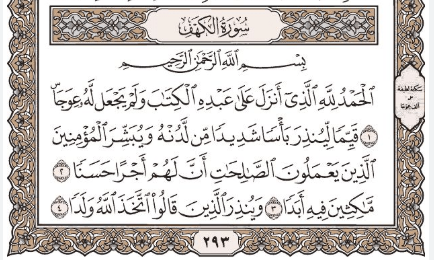 سُورَةُ الكَهْفِ
بِسْمِ اللَّهِ الرَّحْمَٰنِ الرَّحِيمِ
الْحَمْدُ لِلَّهِ الَّذِي أَنزَلَ عَلَىٰ عَبْدِهِ الْكِتَابَ وَلَمْ يَجْعَل لَّهُ عِوَجَاۜ
١ قَيِّمًا لِّيُنذِرَ بَأْسًا شَدِيدًا مِّن لَّدُنْهُ وَيُبَشِّرَ الْمُؤْمِنِينَ
الَّذِينَ يَعْمَلُونَ الصَّالِحَاتِ أَنَّ لَهُمْ أَجْرًا حَسَنًا ٢
مَّاكِثِينَ فِيهِ أَبَدًا ٣ وَيُنذِرَ الَّذِينَ قَالُوا اتَّخَذَ اللَّهُ وَلَدًا ٤
٢٩٣